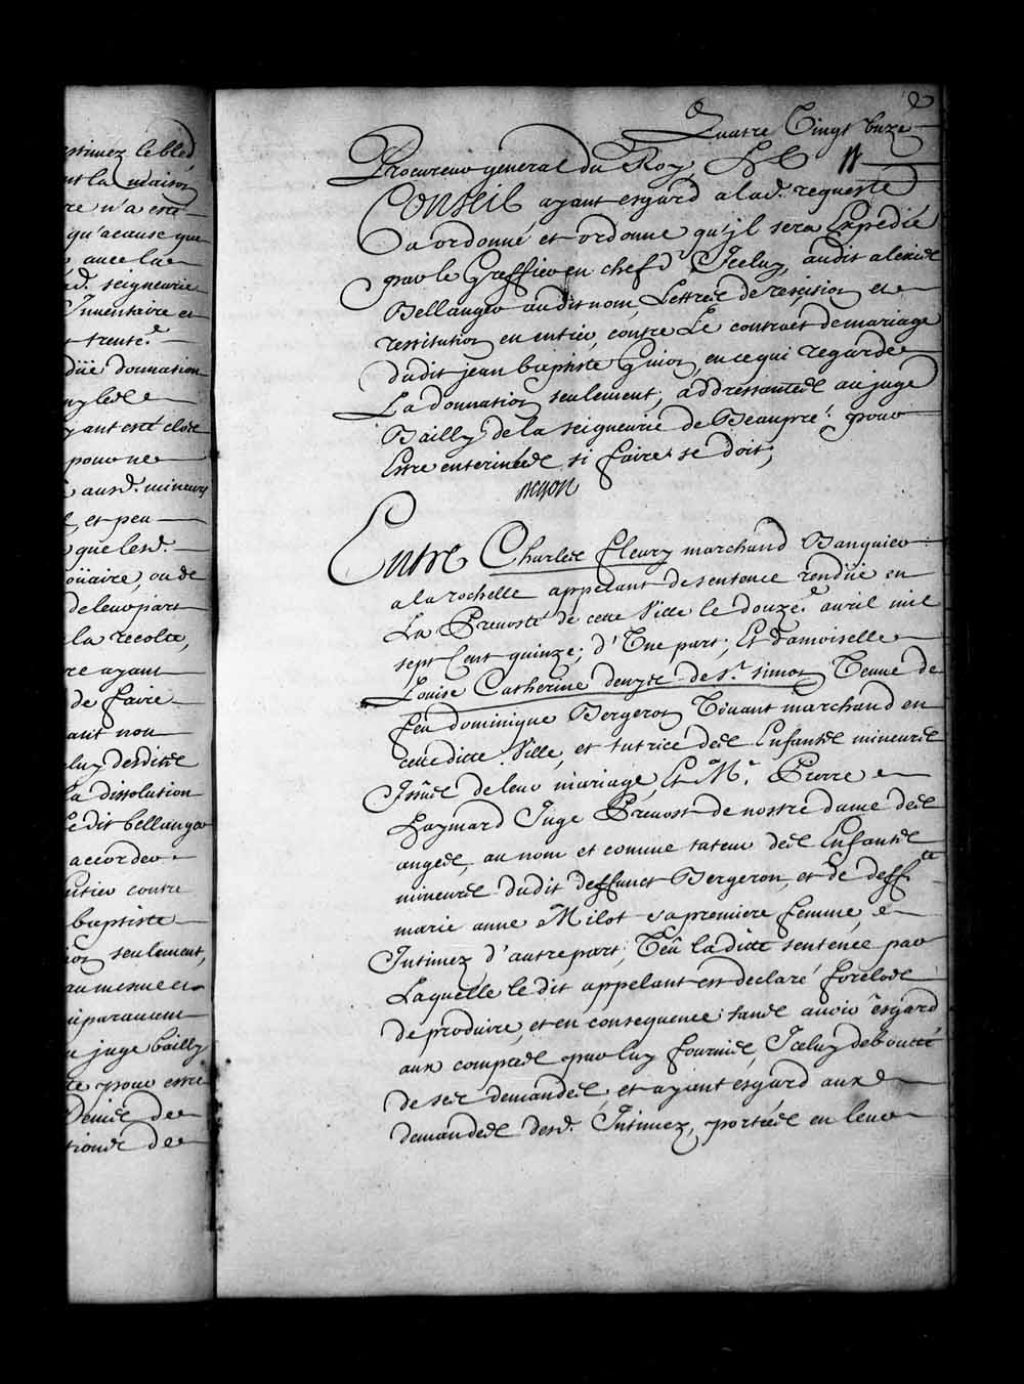 estimez le bled
nt la maison
re n'a esté
qu'acause que
avec la
d. seigneurie
Inventaire et
trente.e
düe donnation
yant esté close
pour ne
ausd. mineurs
, et peu
que lesd.
oüaire, ou de
de leur part
la recolte,
re ayant
de faire
ant non
luy desdites
la dissolution
le dit bellanger
accorder
entier contre
baptiste
ion seulement,
au mesme et
uparavant
u juge bailly
te pour estre
Quatre Vingt Unze
Procureur general du Roy, LE
Conseil ayant esgard a lad. requeste
a ordonné et ordonne qu'jl sera Expedié
par le Greffier en chef d'Jceluy, audit alexis
Bellanger audit nom, Lettres de rescision et
restitution en entier, contre Le contract de mariage
dudit jean baptiste Guion, en ce qui regarde
La donnation seulement, addressantes au juge
Bailly de la seigneurie de Beaupré pour
Estre enterinées si faire se doit;
Begon
Entre Charles fleury marchand Banquier
a la rochelle appelant de sentence rendüe en
La Prevosté de cette Ville le douze.e avril mil
sept Cent quinze; d'Une part; Et damoiselle
Louise Catherine denys de St. simon Veuve de
feu dominique Bergeron Vivant marchand en
cette dicte Ville, et tutrice des Enfants mineurs
Issus de leur mariage, Et Mr. Pierre
haymard Juge Prevost de nostre dame des
anges, au nom et comme tuteur des Enfants
mineurs dudit deffunct Bergeron, et de deff.te
marie anne Milot sa premiere femme,
Intimez d'autre part; Veü la dicte sentence par
Laquelle le dit appelant est declaré forclos
de produire, et en consequence sans avoir esgard
aux comptes par luy fournis, Iceluy debouté
de ses demandes, et ayant esgard aux
demandes desd. Intimez, portées en leur